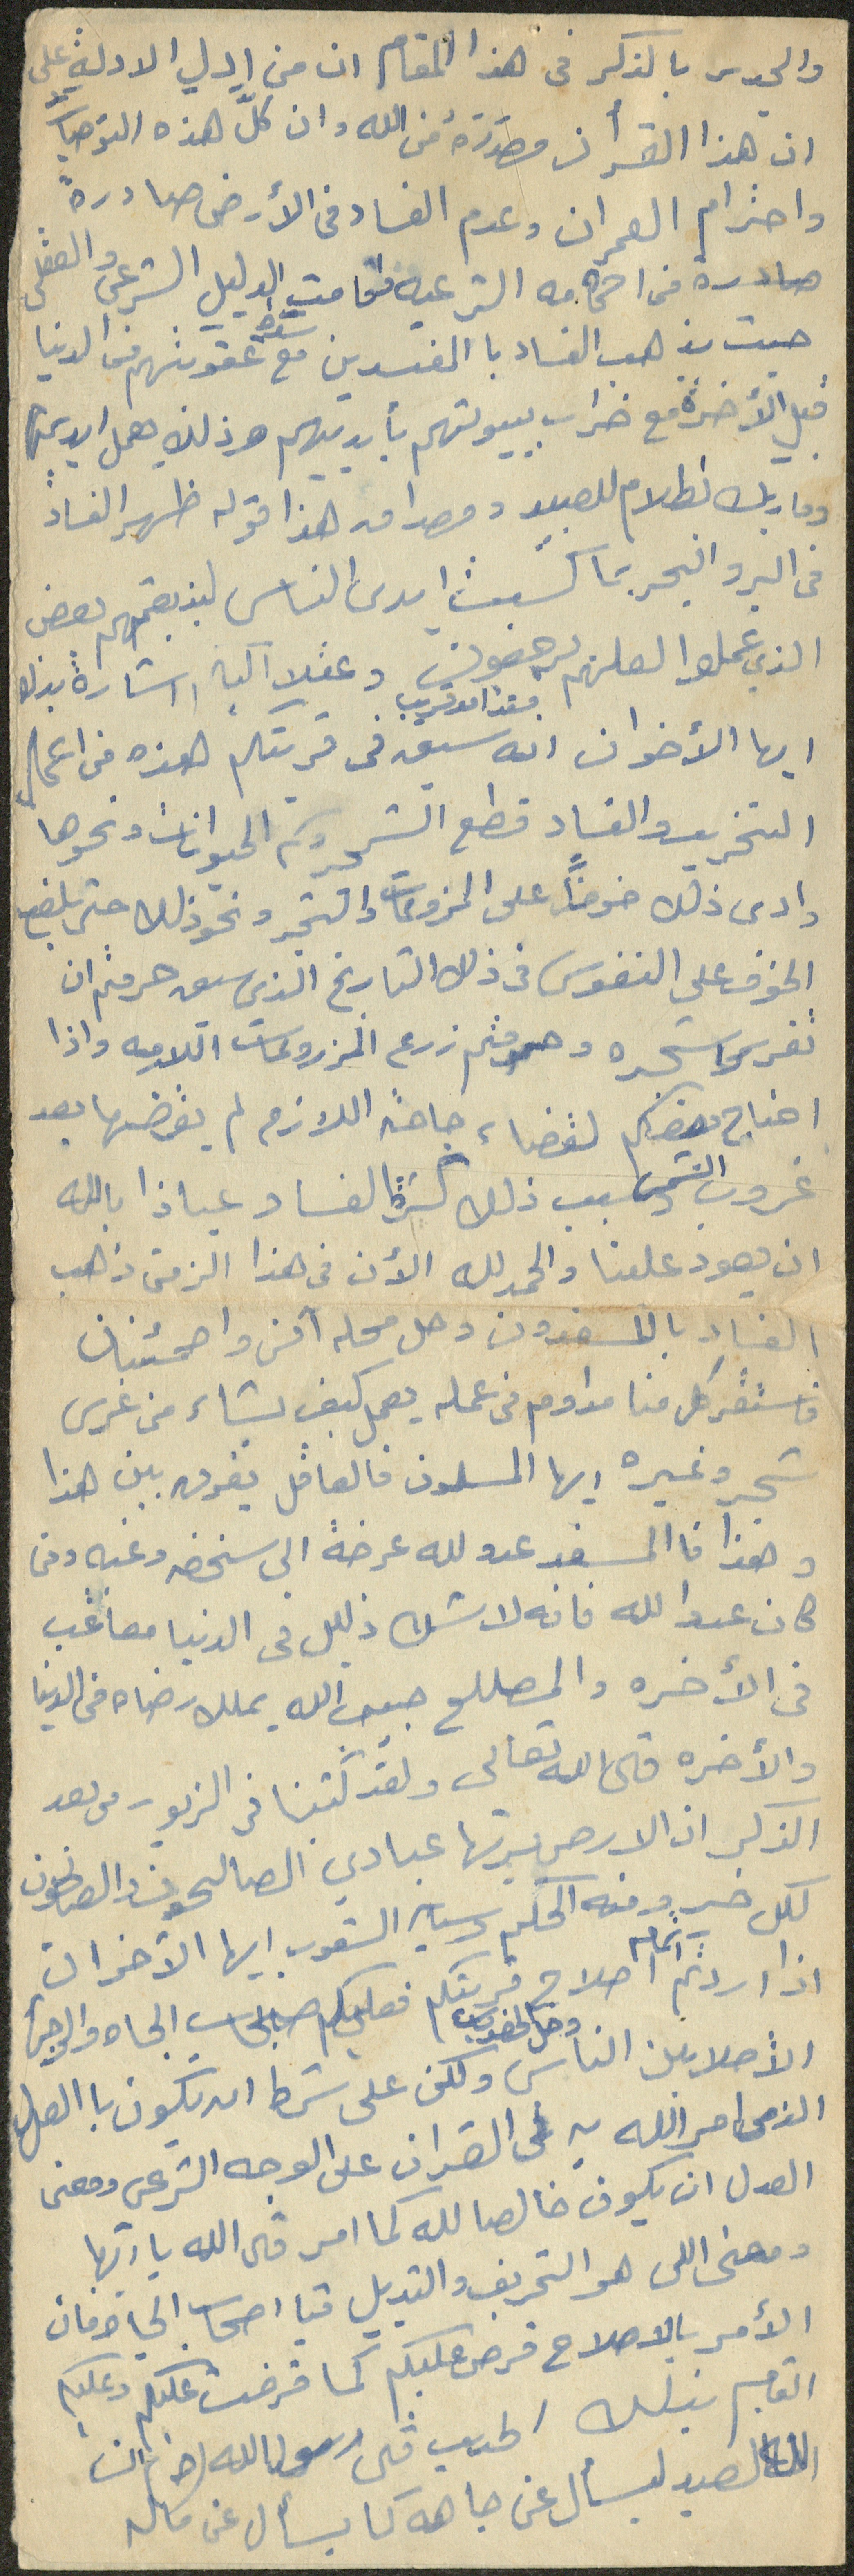 والجدير بالذكر في هذا المقام ان من ادل الادلة على
ان هذا القرأن مصدره من الله وان كلّ هذه التوصيات
واحترام العمران وعدم الفساد في الأرض صادرة
صادرة من احكامه الشرعية فقامت الدليل الشرعي والعقلي
حيث يذهب الفساد باالمفسدين مع شدة عقوبتهم في الدنيا
قبل الأخرة مع خراب بيوتهم بأيديهم وذلك بعمل ايديهم
وما ربك بظلام للعبيد ومصداق هذا قوله ظهر الفساد
في البر والبحر بما كسبت ايدي الناس ليذيقهم بعض
الذي عملوا لعلهم يرجعون وعقلا اكبر اشارة بذلك
ايها الأخوان انه سبق منذ امد قريب في قريتكم هذه من اعمال
التخريب والفساد قطع الشجر وسم الحيوانات ونحوها
وادى ذلك خوفاً على المزروعات والشجر ونحو ذلك حتى بلغ
الخوف على النفوس في ذلك التاريخ الذي سبق حرمتم ان
تغرس شجره وحرمتم زرع المزروعات اللازمه واذا
احتاج بعضكم لقضاء حاجته اللازم لم يقضها بعد
غروب الشمس وسبب ذلك كثرة الفساد عياذا بالله
ان يعود علينا والحمد لله الأن في هذا الزمن ذهب
الفساد بالمفسدون وحل محله آمن واطمئنان
فاستقر كل منا مداوم في عمله يعمل كيف يشاء من غرس
شجر وغيره ايها المسلمون فالعاقل يفرق بين هذا
وهذا فاالمفسد عدو لله عرضة الى سخطه وغضبه ومن
كان عدوا لله فانه لا شك ذليل في الدنيا معاقب
في الأخره والمصلح حبيب الله يملك رضاه في الدنيا
والأخره قال الله تعالى ولقد كتبنا في الزبور من بعد
الذكر ان الارض يرثها عبادي الصالحون والصالحون
لكل خير ومنه الحكم وسياسة الشعوب ايها الأخوان
اذا اردتم اتمام اصلاح قريتكم فعليكم صاحب الجاه والوجيه
الأصلاح بين الناس وحل الخصومات ولكن على شرط ان يكون باالعدل
الذي امر الله به في القران على الوجه الشرعي ومعنى
العدل ان يكون خالصا لله كما امر قال الله ياايها
ومعنى اللي هو التحريف والتبديل فيا اصحاب الجاه فان
الأمر بالاصلاح فرض عليكم كما فرضت عليكم وعليكم
القيام بذلك الحديث قال رسول الله (ص) ان
الله العبد ليسأل عن جاهه كما يسأل عن ماله